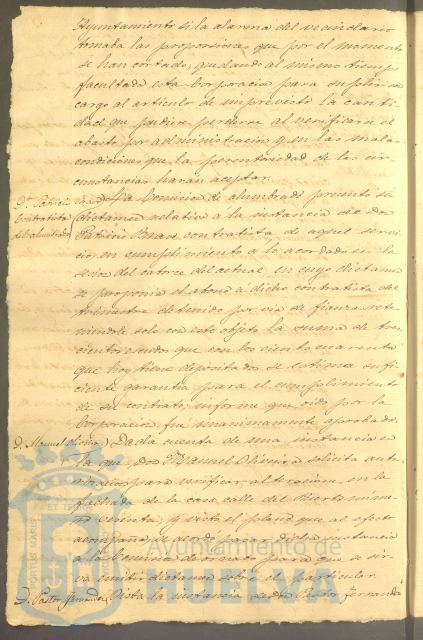 Ayuntamiento si la alarma del vecindario
tomaba las proporciones que por el momento
se han cortado, quedando al mismo tiempo
facultada esta Corporacion para suplir con
cargo al articulo de imprevisto la canti
dad que pudiera perderse al verificarse el
abasto por administracion y en las malas
condiciones que la perentoriedad de las cir
cunstancias harán aceptar.
D. Patricio
Contratista
del alumbrado
La Comision de alumbrado presentó su
dictamen relativo a la instancia de Don
Patricio contratista de aquel servi
cio, en cumplimiento a lo acordado en la
sesion del catorce del actual, en cuyo dictamen
se proponia el abono á dicho contratista del
trimestre detenido por via de fianza rete
niendole solo con este objeto la suma de tres
cientos escudos que con los ciento cuarenta
que hoy tiene depositados se estima sufi
ciente garantia para el cumplimiento
de su contrato; informe que oido por la
Corporacion fue unanimemente aprobado.
D. Manuel Oliveira
Dada cuenta de una instancia en
la que Don Manuel Oliveira solicita auto
rizacion para verificar alteracion en la
fachada de la casa calle del Puerto nume
ro noventa, y visto el plano que al efecto
acompaña, se acordó pasar dicha instancia
a la Comision de ornato para que se sir
va emitir dictamen sobre el particular.
D. Pastor Fernandez
Vista la instancia de Don Pastor Fernandez
PORTUS MARIS
ET TERRAE
Ayuntamiento de
HUELVA